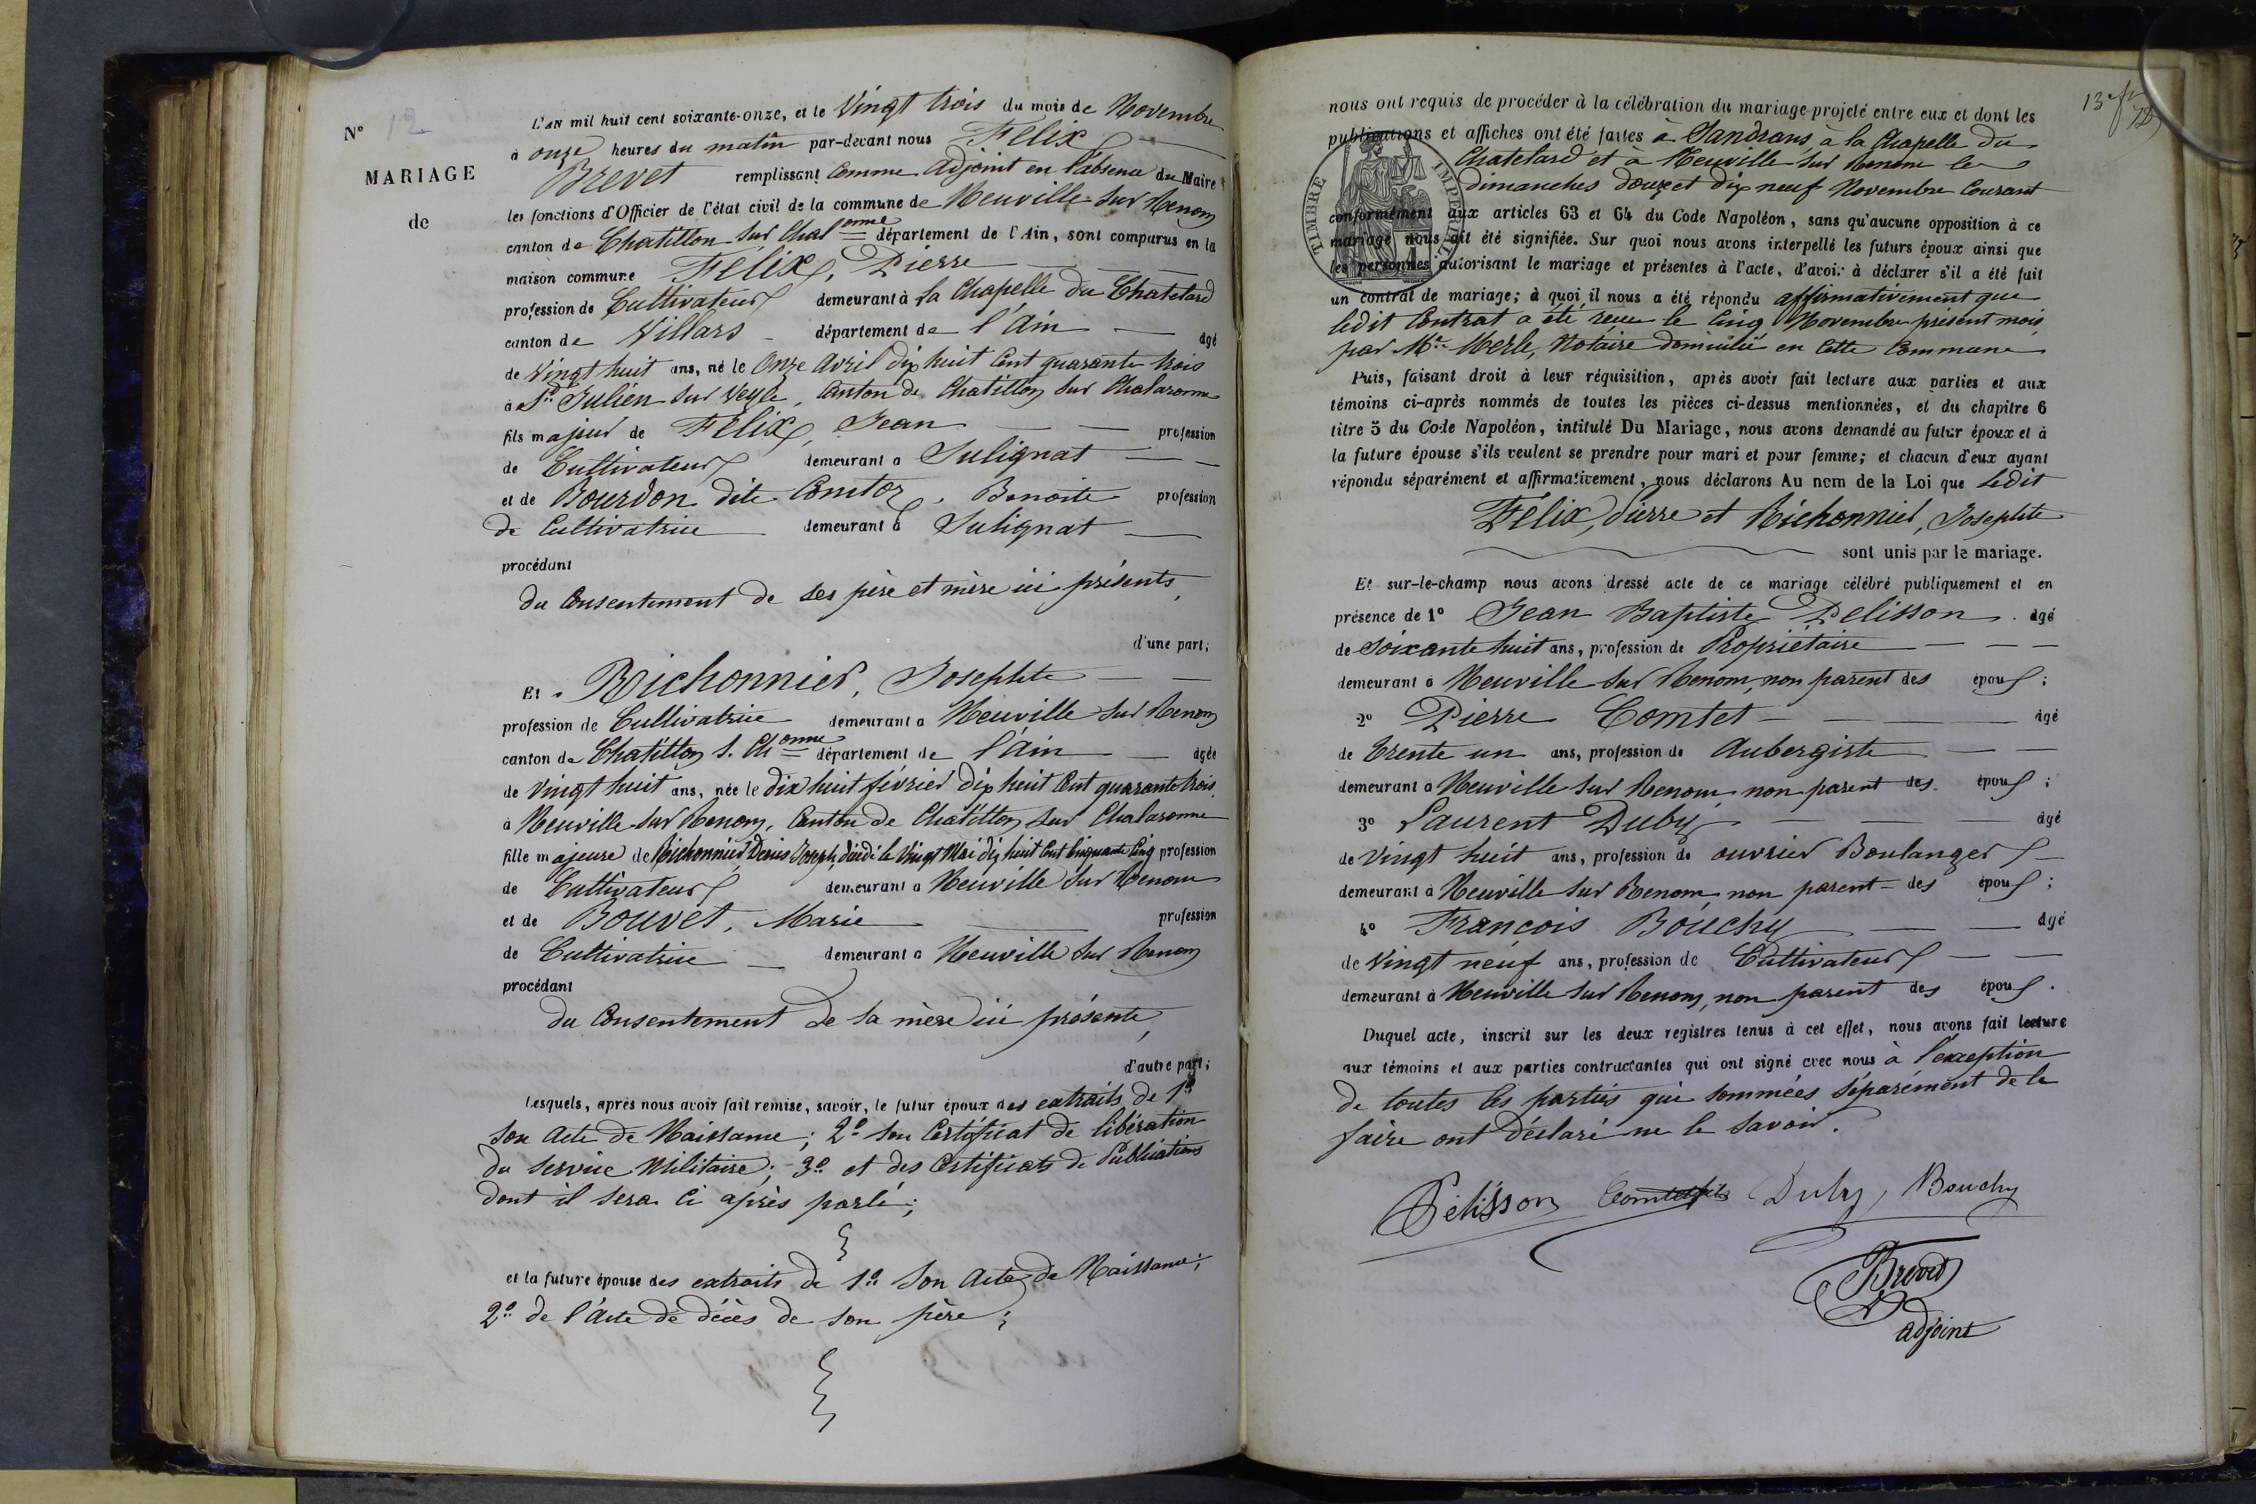 N° 12
MARIAGE
de
L'AN mil huit cent soixante-onze, et le Vingt trois du mois de Novembre
à onze heures du matin par-devant nous Felix
Brevet remplissant comme adjoint en l'absence du Maire
les fonctions d'Officier de l'état civil de la commune de Neuville sur Renom
canton de Chatillon sur Chalonne département de l'Ain, sont comparus en la
maison commune Félix, Pierre
profession de Cultivateur demeurant à la Chapelle du Chatelard
canton de Villars département de l'Ain âgé
de vingt huit ans, né le Onze avril dix huit cent quarante trois
à St Julien sur Veyle, canton de Chatillon sur Chalaronne
fils majeur de Félix, Jean profession
de Cultivateur demeurant à Sulignat
et de Bourdon dite Comtoz, Benoite profession
de Cultivatrice demeurant à Sulignat
procédant
du consentement de ses père et mère ici présents,
d'une part;
Et Richonnier, Josephte
profession de Cultivatrice demeurant à Neuville sur Renom
canton de Chatillon s. Chonne département de l'Ain âgée
de vingt huit ans, née le dix huit février dix huit cent quarante trois
à Neuville sur Renom, canton de Chatillon sur Chalaronne
fille majeure de Richonnier Denis Joseph, décédé le vingt Mai dix huit cent cinquante cinq profession
de Cultivateur demeurant à Neuville sur Renom
et de Bouvet, Marie profession
de Cultivatrice demeurant à Neuville sur Renom
procédant
du consentement de sa mère ici présente,
d'autre part;
Lesquels, après nous avoir fait remise, savoir, le futur époux des extraits de 1°
son acte de Naissance; 2° son certificat de libération
du service Militaire; 3° et des certificats de Publications
dont il sera ci après parlé;
et la future épouse des extraits de 1° son acte de Naissance;
2° de l'acte de décès de son père;
nous ont requis de procéder à la célébration du mariage projeté entre eux et dont les
publications et affiches ont été faites à Sandrans, à la Chapelle du
Chatelard et à Neuville sur Renom les
dimanches douze et dix neuf Novembre courant
conformément aux articles 63 et 64 du Code Napoléon, sans qu'aucune opposition à ce
mariage nous ait été signifiée. Sur quoi nous avons interpellé les futurs époux ainsi que
les personnes autorisant le mariage et présentes à l'acte, d'avoir à déclarer s'il a été fait
un contrat de mariage; à quoi il nous a été répondu affirmativement que
ledit contrat a été reçu le cinq Novembre présent mois
par Me Merle, Notaire domicilié en cette commune
TIMBRE IMPERIAL
Puis, faisant droit à leur réquisition, après avoir fait lecture aux parties et aux
témoins ci-après nommés de toutes les pièces ci-dessus mentionnées, et du chapitre 6
titre 5 du Code Napoléon, intitulé Du Mariage, nous avons demandé au futur époux et à
la future épouse s'ils veulent se prendre pour mari et pour femme; et chacun d'eux ayant
répondu séparément et affirmativement, nous déclarons Au nom de la Loi que ledit
Félix, Pierre et Richonnier, Josephte
sont unis par le mariage.
Et sur-le-champ nous avons dressé acte de ce mariage célébré publiquement et en
présence de 1° Jean Baptiste Pelisson âgé
de soixante huit ans, profession de Propriétaire
demeurant à Neuville sur Renom, non parent des époux;
2° Pierre Comtet âgé
de trente un ans, profession de Aubergiste
demeurant à Neuville sur Renom non parent des époux;
3° Laurent Duby âgé
de vingt huit ans, profession de ouvrier Boulanger
demeurant à Neuville sur Renom, non parent des époux;
4° François Bouchy âgé
de vingt neuf ans, profession de Cultivateur
demeurant à Neuville sur Renom, non parent des époux.
Duquel acte, inscrit sur les deux registres tenus à cet effet, nous avons fait lecture
aux témoins et aux parties contractantes qui ont signé avec nous à l'exception
de toutes les parties qui sommées séparément de le
faire ont déclaré ne le savoir.
Pélisson Comtet fils Duby Bouchy
Brevet
adjoint